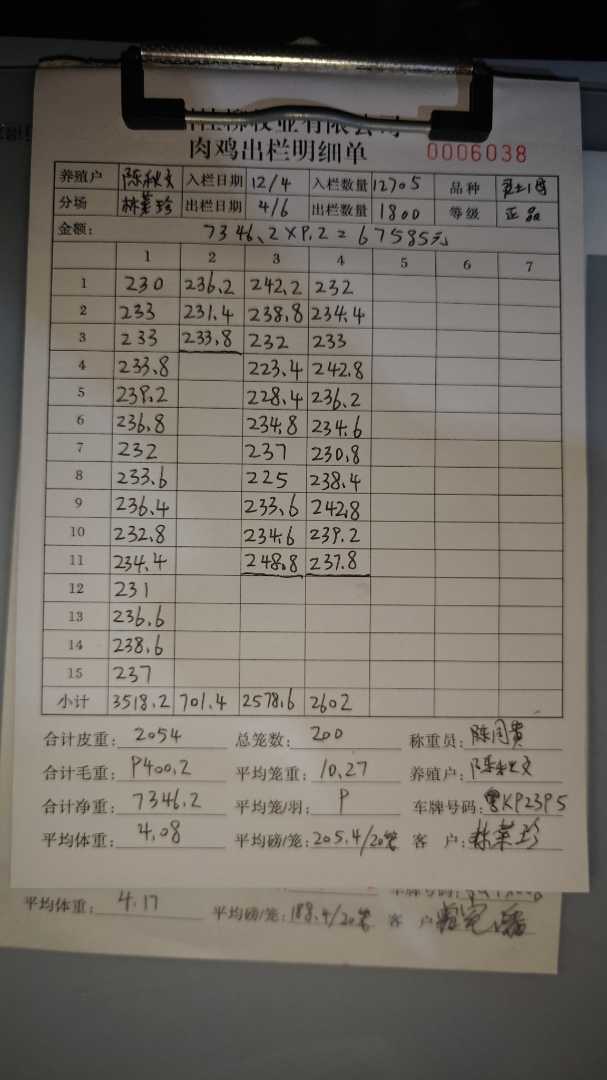 牧业有限公司
肉鸡出栏明细单 0006038
养殖户 陈秋文 入栏日期 12/4 入栏数量 12705 品种
分场 林菜珍 出栏日期 4/6 出栏数量 1800 等级 正品
金额: 7346.2×9.2=67585元
1 2 3 4 5 6 7
1 230 236.2 242.2 232
2 233 231.4 238.8 234.4
3 233 233.8 232 233
4 233.8 223.4 242.8
5 239.2 228.4 236.2
6 236.8 234.8 234.6
7 232 237 230.8
8 233.6 225 238.4
9 236.4 233.6 242.8
10 232.8 234.6 239.2
11 234.4 248.8 237.8
12 231
13 236.6
14 238.6
15 237
小计 3518.2 701.4 2578.6 2602
合计皮重: 2054 总笼数: 200 称重员:
合计毛重: 9400.2 平均笼重: 10.27 养殖户: 陈秋文
合计净重: 7346.2 平均笼/羽: 9 车牌号码: 粤KP2395
平均体重: 4.08 平均磅/笼: 205.4/20笼 客户: 林菜珍
平均体重: 4.17 平均磅/笼: 188.4/20笼 客户